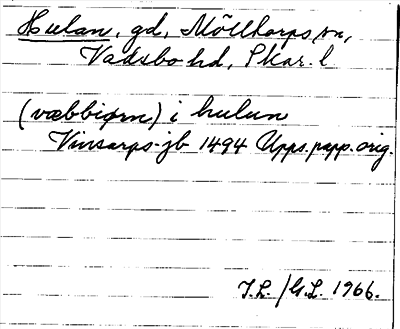 Hulan, gd, Mölltorps sn,
Vadsbo hd, Skar. l
(væbbiørn) i hulun
Vinsarps-jb 1494 Upps. papp. orig.
J.L. /G.L. 1966.